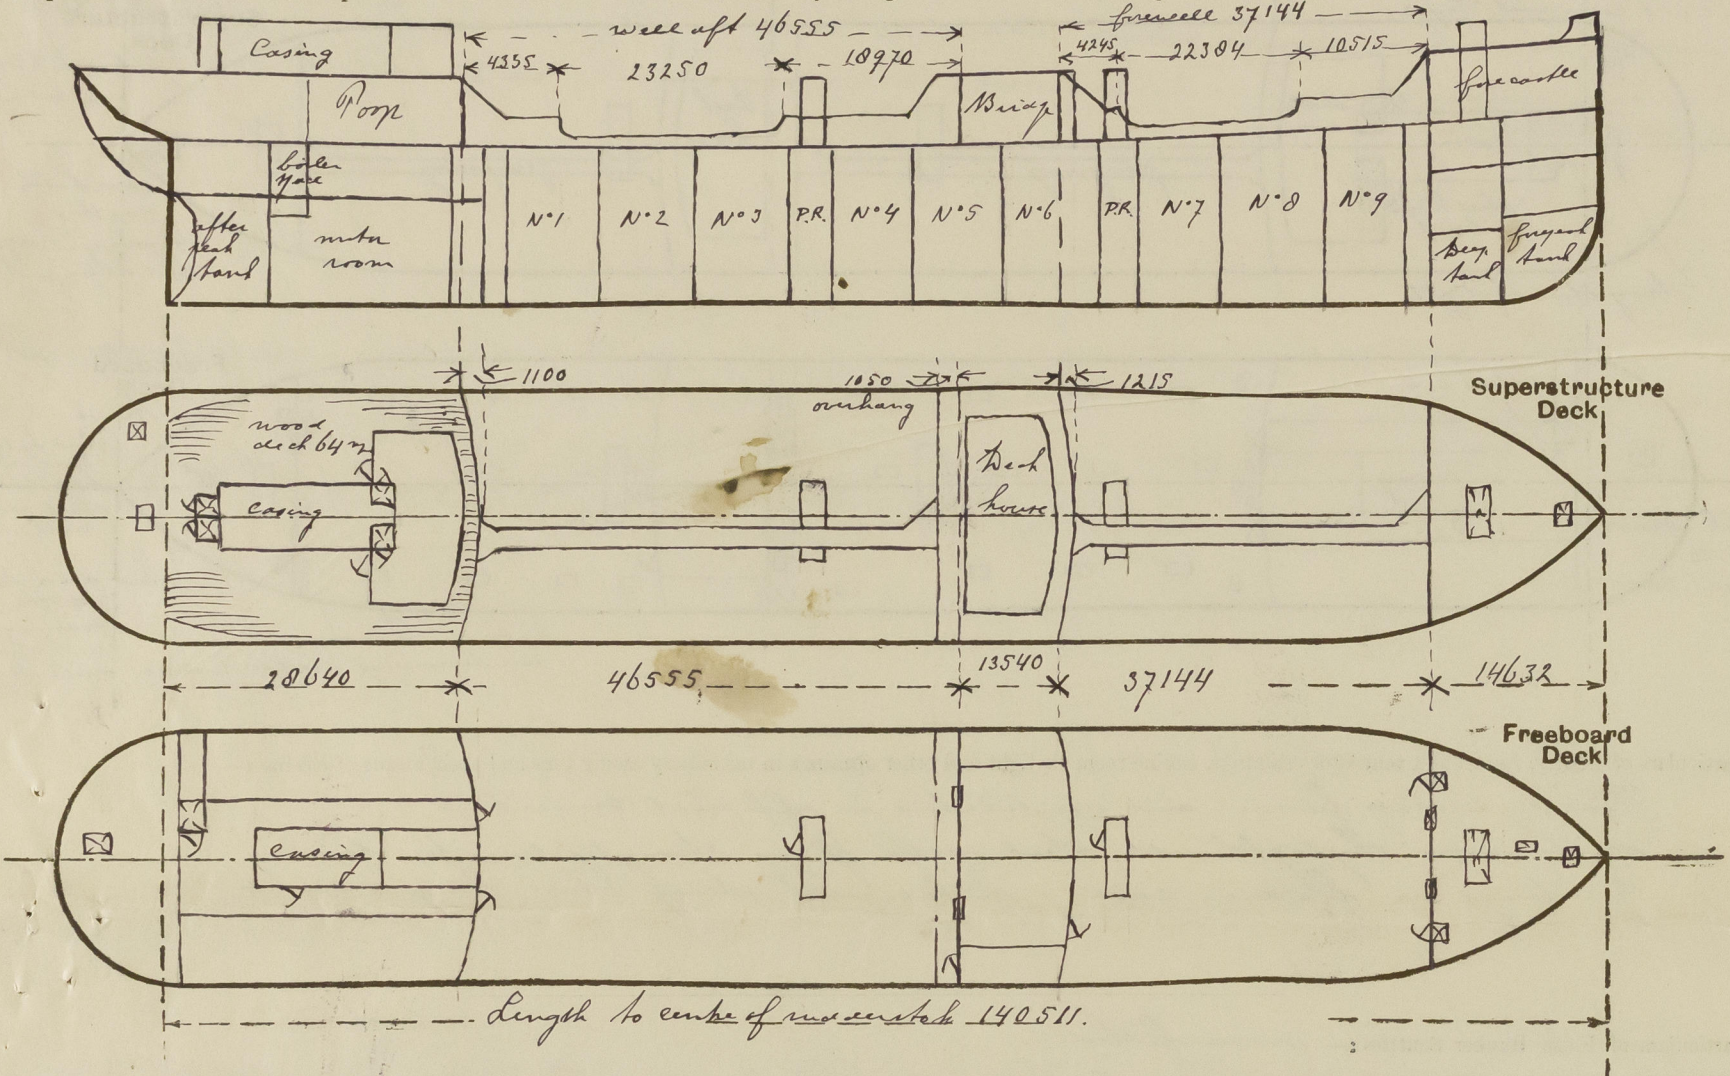 well aft 46555
forewell 37144
4355
23250
18970
4245
22384
10515
Casing
Poop
Bridge
forecastle
boiler
space
after
peak
tank
motor
room
N°1
N°2
N°3
P.R.
N°4
N°5
N°6
P.R.
N°7
N°8
N°9
Deep
tank
forepeak
tank
1100
1050
overhang
1215
Superstructure
Deck
wood
deck 64 m
Casing
Deck
house
28640
46555
13540
37144
14632
Freeboard
Deck
Casing
Length to centre of rudderstock 140511.